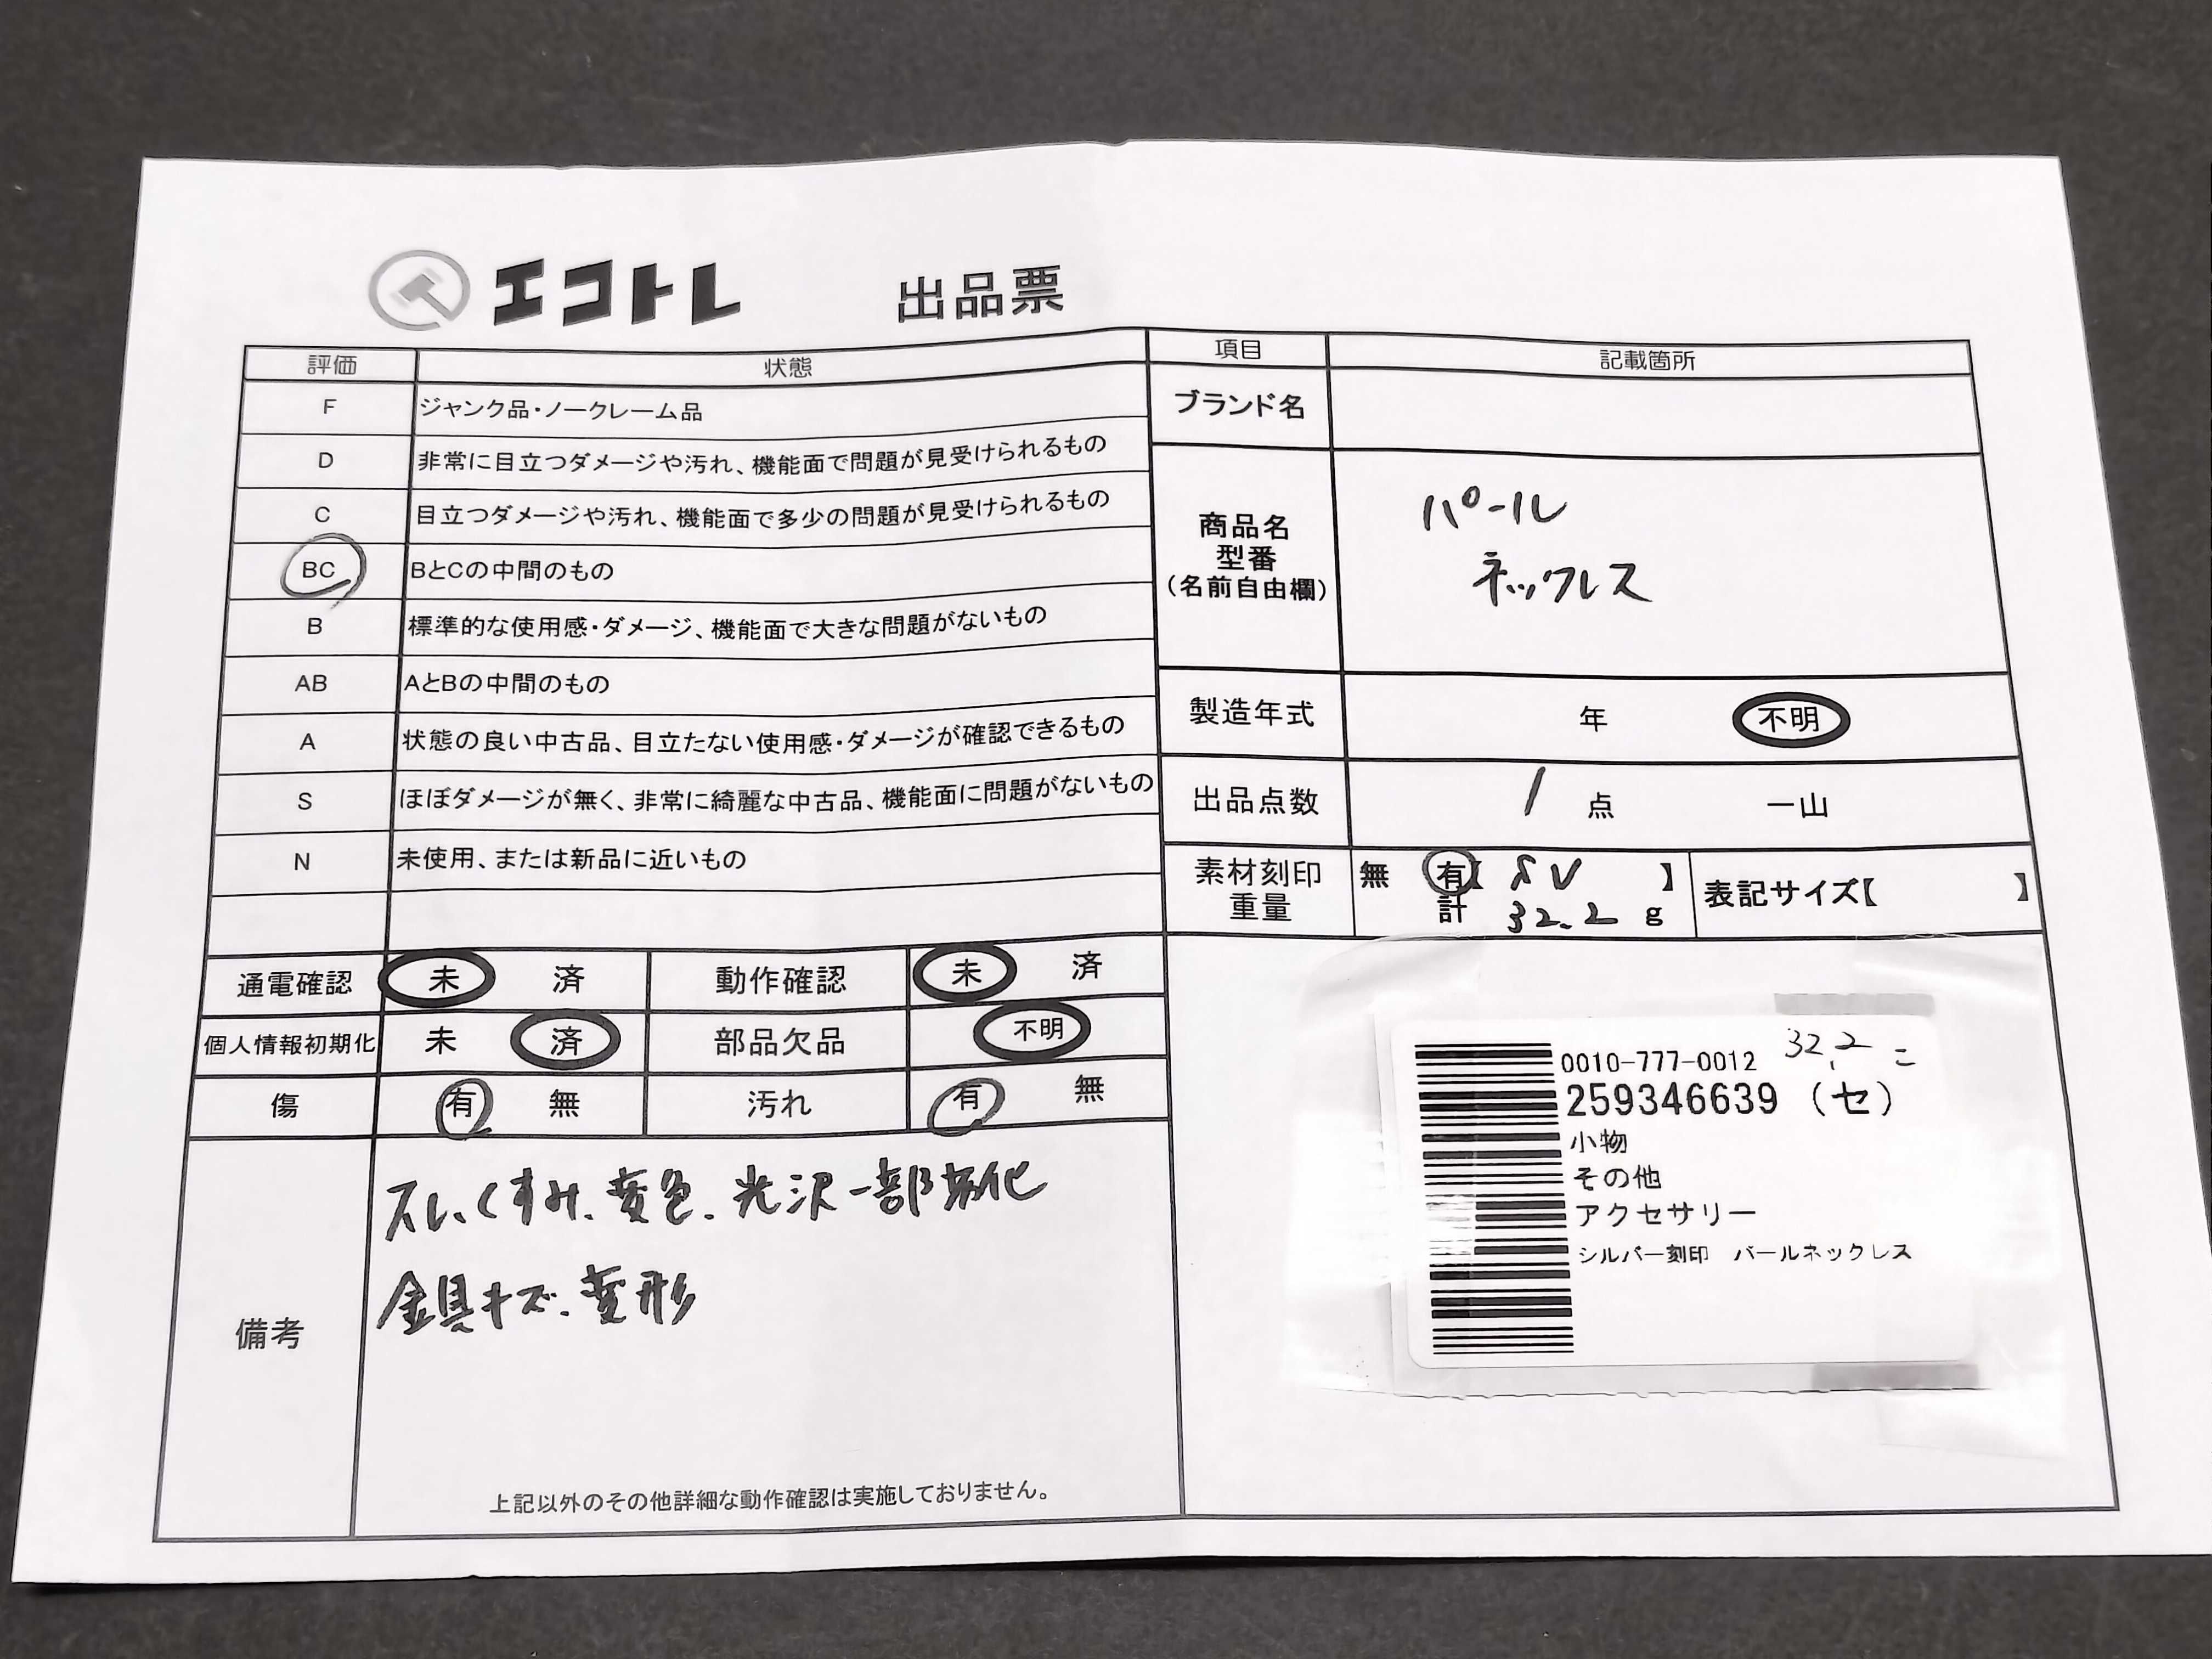 エコトレ 出品票
評価 状態
F ジャンク品・ノークレーム品
D 非常に目立つダメージや汚れ、機能面で問題が見受けられるもの
C 目立つダメージや汚れ、機能面で多少の問題が見受けられるもの
BC BとCの中間のもの
B 標準的な使用感・ダメージ、機能面で大きな問題がないもの
AB AとBの中間のもの
A 状態の良い中古品、目立たない使用感・ダメージが確認できるもの
S ほぼダメージが無く、非常に綺麗な中古品、機能面に問題がないもの
N 未使用、または新品に近いもの
通電確認 未 済 動作確認 未 済
個人情報初期化 未 済 部品欠品 不明
傷 有 無 汚れ 有 無
備考
スレ、くすみ、黄色、光沢一部劣化
金具キズ、変形
上記以外のその他詳細な動作確認は実施しておりません。
項目 記載箇所
ブランド名
商品名
型番
(名前自由欄)
パール
ネックレス
製造年式 年 不明
出品点数 1 点 一山
素材刻印
重量
無 有【 SV 】
計 32.2 g
表記サイズ【 】
0010-777-0012 32.2 こ
259346639 (セ)
小物
その他
アクセサリー
シルバー刻印 パールネックレス